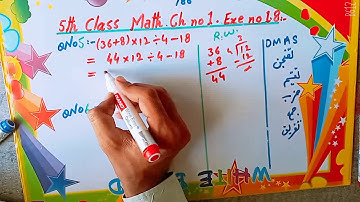 5th Class Math Ch no 1. Exe no 1.8:-
QNo5:- (36+8)×12÷4-18
= 44×12÷4-18
=
QNo6
R.W.
36
+8
44
3
4 12
12
DMAS
تقسیم
ضرب
جمع
تفریق
WHITE